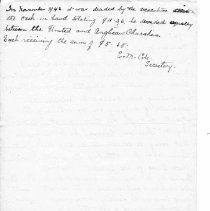 In November 1942 it was decided by the executive
the cash in hand totaling $11.30 be divided equally
between the United and Anglican Churches.
Each receiving the sum of $5.65.
E. M. Cole
Secretary.